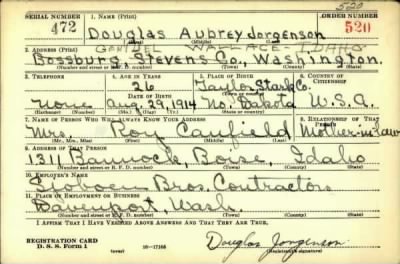 SERIAL NUMBER 1. NAME (Print) ORDER NUMBER
520
472 Douglas Aubrey Jorgenson 520
(First) (Middle) (Last)
2. ADDRESS (Print) WALLACE - IDAHO
Bossburg, Stevens Co., Washington.
(Number and street or R. F. D. number) (Town) (County) (State)
3. TELEPHONE 4. AGE IN YEARS 5. PLACE OF BIRTH 6. COUNTRY OF CITIZENSHIP
26 Taylor Stark Co.
DATE OF BIRTH (Town or county)
None Aug. 29, 1914 No. Dakota U.S.A.
(Exchange) (Number) (Mo.) (Day) (Yr.) (State or country)
7. NAME OF PERSON WHO WILL ALWAYS KNOW YOUR ADDRESS 8. RELATIONSHIP OF THAT PERSON
Mrs. Roy Canfield Mother-in-law
(Mr., Mrs., Miss) (First) (Middle) (Last)
9. ADDRESS OF THAT PERSON
1311 Bannock, Boise, Idaho
(Number and street or R. F. D. number) (Town) (County) (State)
10. EMPLOYER'S NAME
Bros. Contractors
11. PLACE OF EMPLOYMENT OR BUSINESS
Davenport, Wash.
(Number and street or R. F. D. number) (Town) (County) (State)
I AFFIRM THAT I HAVE VERIFIED ABOVE ANSWERS AND THAT THEY ARE TRUE.
REGISTRATION CARD
D. S. S. Form 1 (over) 16-17105 Douglas Jorgenson
(Registrant's signature)